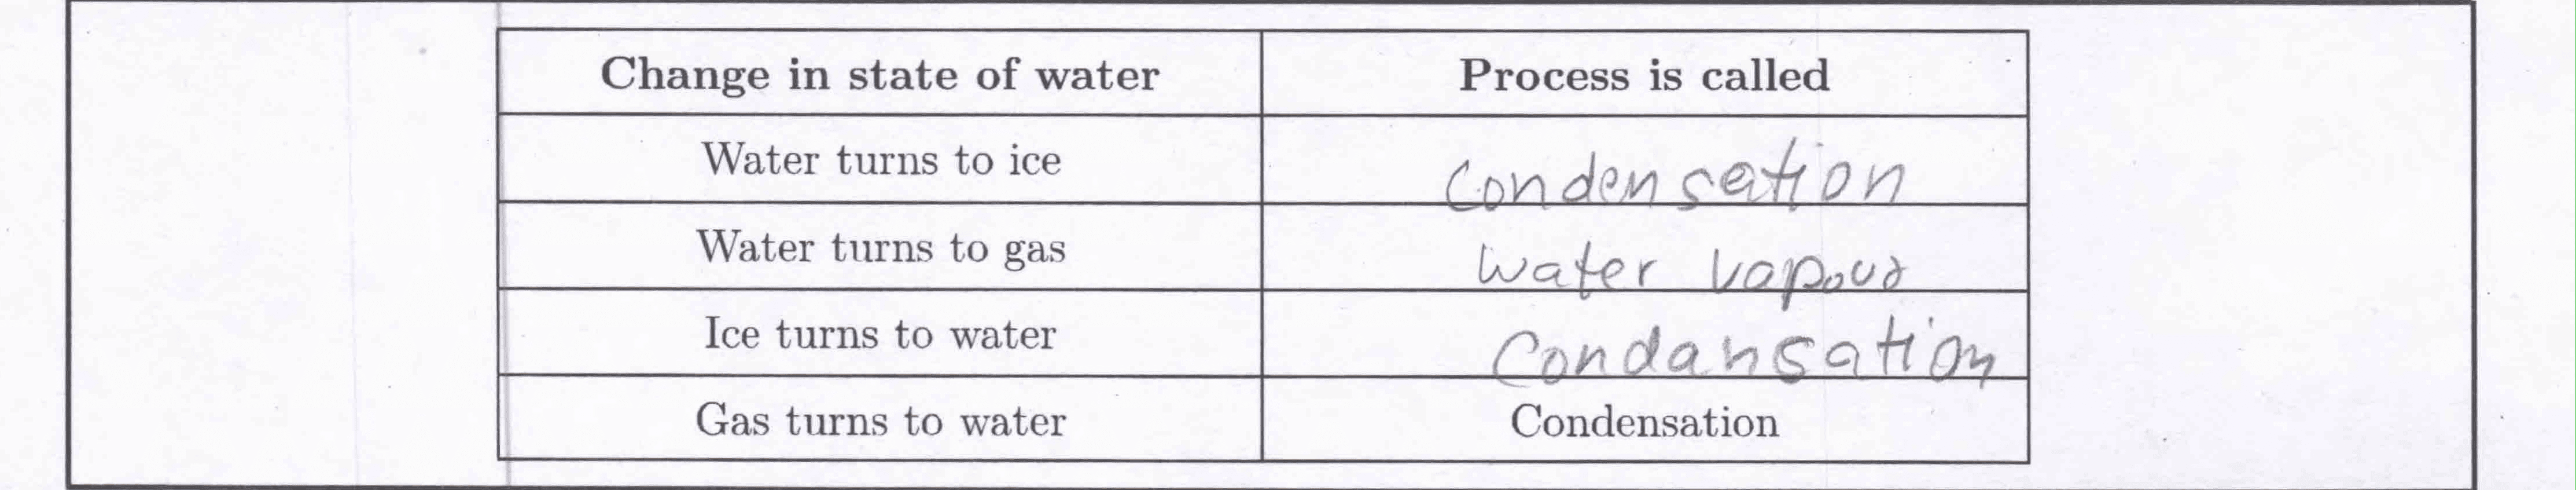 Change in state of water Process is called
Water turns to ice Condensation
Water turns to gas Water vapour
Ice turns to water Condansation
Gas turns to water Condensation